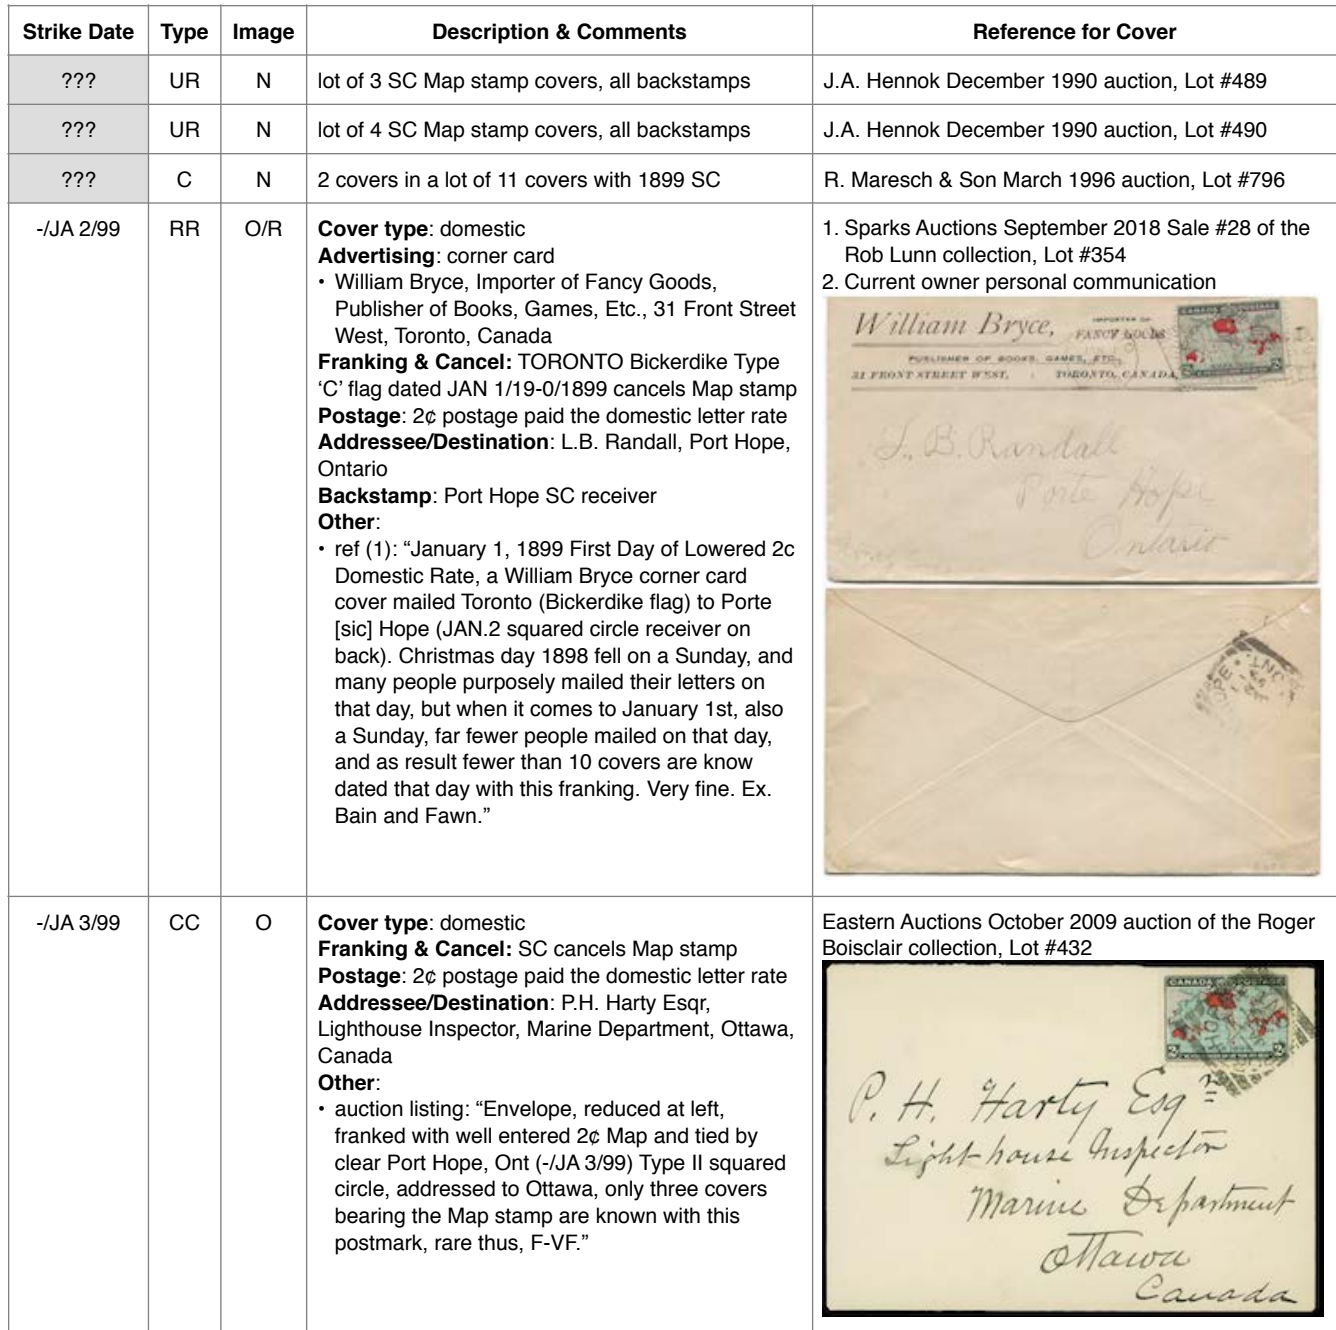 Strike Date Type Image Description & Comments Reference for Cover
??? UR N lot of 3 SC Map stamp covers, all backstamps J.A. Hennok December 1990 auction, Lot #489
??? UR N lot of 4 SC Map stamp covers, all backstamps J.A. Hennok December 1990 auction, Lot #490
??? C N 2 covers in a lot of 11 covers with 1899 SC R. Maresch & Son March 1996 auction, Lot #796
-/JA 2/99 RR O/R
Cover type: domestic
Advertising: corner card
• William Bryce, Importer of Fancy Goods,
Publisher of Books, Games, Etc., 31 Front Street
West, Toronto, Canada
Franking & Cancel: TORONTO Bickerdike Type
‘C’ flag dated JAN 1/19-0/1899 cancels Map stamp
Postage: 2¢ postage paid the domestic letter rate
Addressee/Destination: L.B. Randall, Port Hope,
Ontario
Backstamp: Port Hope SC receiver
Other:
• ref (1): “January 1, 1899 First Day of Lowered 2c
Domestic Rate, a William Bryce corner card
cover mailed Toronto (Bickerdike flag) to Porte
[sic] Hope (JAN.2 squared circle receiver on
back). Christmas day 1898 fell on a Sunday, and
many people purposely mailed their letters on
that day, but when it comes to January 1st, also
a Sunday, far fewer people mailed on that day,
and as result fewer than 10 covers are know
dated that day with this franking. Very fine. Ex.
Bain and Fawn.”
1. Sparks Auctions September 2018 Sale #28 of the
Rob Lunn collection, Lot #354
2. Current owner personal communication
William Bryce,
IMPORTER OF
FANCY GOODS
PUBLISHER OF BOOKS, GAMES, ETC.,
31 FRONT STREET WEST, TORONTO, CANADA,
CANADA POSTAGE
2
L. B. Randall
Porte Hope
Ontario
HOPE ONT
-/JA 3/99 CC O
Cover type: domestic
Franking & Cancel: SC cancels Map stamp
Postage: 2¢ postage paid the domestic letter rate
Addressee/Destination: P.H. Harty Esqr,
Lighthouse Inspector, Marine Department, Ottawa,
Canada
Other:
• auction listing: “Envelope, reduced at left,
franked with well entered 2¢ Map and tied by
clear Port Hope, Ont (-/JA 3/99) Type II squared
circle, addressed to Ottawa, only three covers
bearing the Map stamp are known with this
postmark, rare thus, F-VF.”
Eastern Auctions October 2009 auction of the Roger
Boisclair collection, Lot #432
CANADA POSTAGE
2 2
P. H. Harty Esqr
Light-house Inspector
Marine Department
Ottawa
Canada